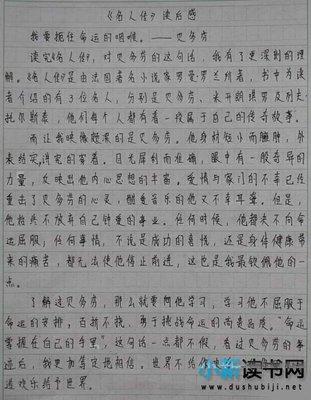 《名人传》读后感
我要扼住命运的咽喉。——贝多芬
读完《名人传》,对贝多芬的这句话,我有了更深刻的理
解。《名人传》是由法国著名小说家罗曼·罗兰所著,书中为读
者介绍的有3位名人,分别是贝多芬、米开朗琪罗及列夫·
托尔斯泰,他们每个人都有着一段属于自己的传奇故事。
而让我印象颇深的是贝多芬。他身材短小而臃肿,外
表结实,
的容着。目光犀利而准确,眼中有一股奇异的
力量,反映出他内心思想的丰富。爱情与家门的不幸已经
重击了贝多芬的心灵,酷爱音乐的他又不幸耳聋。但是,
他始终不放弃自己钟爱的事业。任何时候,他都未不向命
运屈服,任何事情,不论是成功的喜悦,还是身体健康带
来的痛苦,都无法使他停止前进,这也是我最钦佩他的一
点。
了解过贝多芬,那么就要向他学习,学习他不屈服于
命运的安排,百折不挠、勇于挑战命运的高贵品质。“命运
掌握在自己的手里”,这句话一点都不假,看过贝多芬的事
迹后,我更加坚定地相信。世界不给他
造欢乐给予世界。
小新读书网
www.dushubiji.net